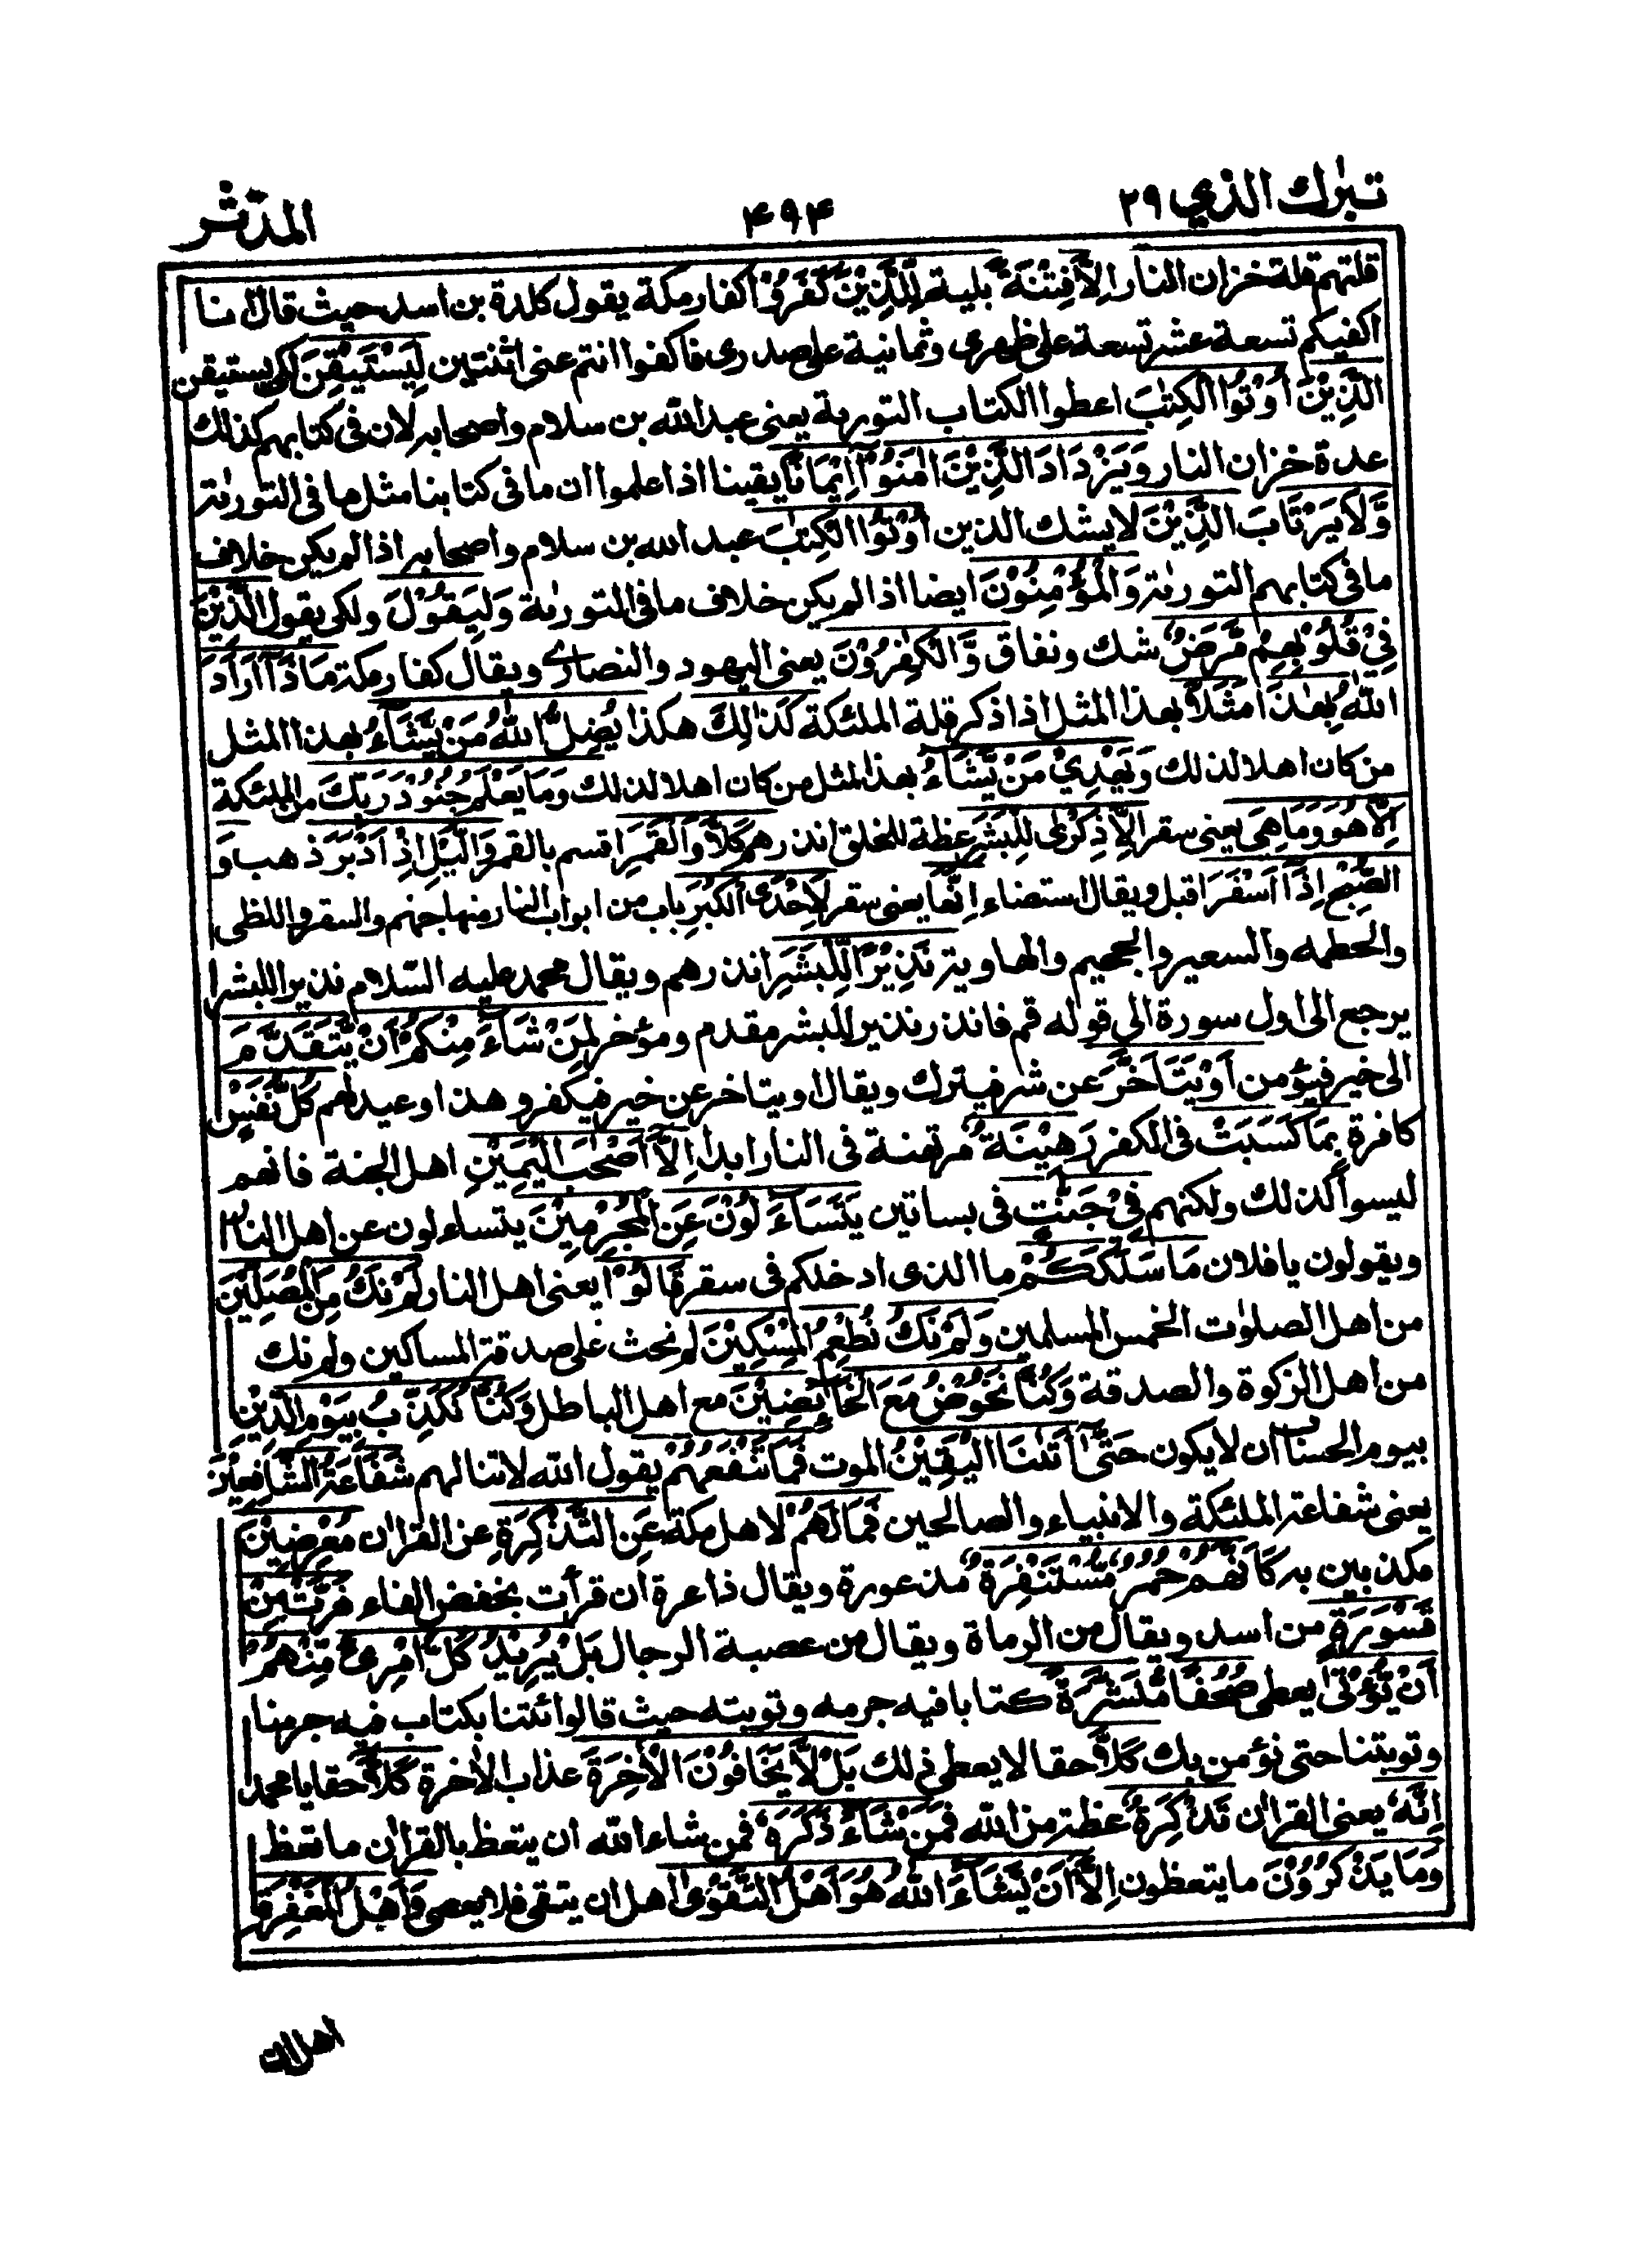 تبٰرك الذي ٢٩ ۴۹۴ المدّثّر
قلتهم قلة خزان النار اِلَّا فِتْنَةً بلية لِّلَّذِيْنَ كَفَرُوْا كفار مكة يقول كلدة بن اسد حيث قال انا
اكفيكم تسعة عشر تسعة على ظهرى وثمانية على صدرى فاكفوا انتم عنى اثنتين لِيَسْتَيْقِنَ لكى يستيقن
الَّذِيْنَ اُوْتُوا الْكِتٰبَ اعطوا الكتاب التورية يعنى عبد الله بن سلام واصحابه لان فى كتابهم كذلك
عدة خزان النار وَيَزْدَادَ الَّذِيْنَ اٰمَنُوْٓا اِيْمَانًا يقينا اذا علموا ان ما فى كتابنا مثل ما فى التورٰىة
وَّلَا يَرْتَابَ الَّذِيْنَ لا يشك الذين اُوْتُوا الْكِتٰبَ عبد الله بن سلام واصحابه اذا لم يكن خلاف
ما فى كتابهم التورٰىة وَالْمُؤْمِنُوْنَ ايضا اذا لم يكن خلاف ما فى التورٰىة وَلِيَقُوْلَ ولكى يقول الَّذِيْنَ
فِيْ قُلُوْبِهِمْ مَّرَضٌ شك ونفاق وَّالْكٰفِرُوْنَ يعنى اليهود والنصارى ويقال كفار مكة مَاذَآ اَرَادَ
اللّٰهُ بِهٰذَا مَثَلًا بهذا المثل اذا ذكر قلة الملئكة كَذٰلِكَ هكذا يُضِلُّ اللّٰهُ مَنْ يَّشَآءُ بهذا المثل
من كان اهلا لذلك وَيَهْدِيْ مَنْ يَّشَآءُ بهذا المثل من كان اهلا لذلك وَمَا يَعْلَمُ جُنُوْدَ رَبِّكَ من الملئكة
اِلَّا هُوَ وَمَا هِيَ يعنى سقر اِلَّا ذِكْرٰى لِلْبَشَرِ عظة للخلق انذرهم كَلَّا وَالْقَمَرِ اقسم بالقمر وَالَّيْلِ اِذْ اَدْبَرَ ذهب وَ
الصُّبْحِ اِذَآ اَسْفَرَ اقبل ويقال استضاء اِنَّهَا يعنى سقر لَاِحْدَى الْكُبَرِ باب من ابواب النار منها جهنم والسقر واللظى
والحطمه والسعير والجحيم والهاوية نَذِيْرًا لِّلْبَشَرِ انذرهم ويقال محمد عليه السّلام نذيرا للبشر
يرجع الى اول سورة الى قوله قم فانذر نذيرا للبشر مقدم ومؤخر لِمَنْ شَآءَ مِنْكُمْ اَنْ يَّتَقَدَّمَ
الى خير فيؤمن اَوْ يَتَاَخَّرَ عن شر فيترك ويقال او يتاخر عن خير فيكفر وهذا وعيد لهم كُلُّ نَفْسٍ
كافرة بِمَا كَسَبَتْ فى الكفر رَهِيْنَةٌ مرتهنة فى النار ابدا اِلَّآ اَصْحٰبَ الْيَمِيْنِ اهل الجنة فانهم
ليسوا كذلك ولكنهم فِيْ جَنّٰتٍ فى بساتين يَتَسَآءَلُوْنَ عَنِ الْمُجْرِمِيْنَ يتساءلون عن اهل النار
ويقولون يا فلان مَا سَلَكَكُمْ ما الذى ادخلكم فى سقر قَالُوْا يعنى اهل النار لَمْ نَكُ مِنَ الْمُصَلِّيْنَ
من اهل الصلوٰت الخمس المسلمين وَلَمْ نَكُ نُطْعِمُ الْمِسْكِيْنَ لم نحث على صدقة المساكين ولم نك
من اهل الزكوة والصدقة وَكُنَّا نَخُوْضُ مَعَ الْخَآئِضِيْنَ مع اهل الباطل وَكُنَّا نُكَذِّبُ بِيَوْمِ الدِّيْنِ
بيوم الحساب ان لا يكون حَتّٰىٓ اَتٰىنَا الْيَقِيْنُ الموت فَمَا تَنْفَعُهُمْ يقول الله لا تنالهم شَفَاعَةُ الشّٰفِعِيْنَ
يعنى شفاعة الملئكة والانبياء والصالحين فَمَا لَهُمْ لاهل مكة عَنِ التَّذْكِرَةِ عن القراٰن مُعْرِضِيْنَ
مكذبين به كَاَنَّهُمْ حُمُرٌ مُّسْتَنْفِرَةٌ مذعورة ويقال ذاعرة ان قرأت بخفض الفاء فَرَّتْ مِنْ
قَسْوَرَةٍ من اسد ويقال من الرماة ويقال من عصبة الرجال بَلْ يُرِيْدُ كُلُّ امْرِئٍ مِّنْهُمْ
اَنْ يُّؤْتٰى يعطى صُحُفًا مُّنَشَّرَةً كتابا فيه جرمه وتوبته حيث قالوا ائتنا بكتاب فيه جرمنا
وتوبتنا حتى نؤمن بك كَلَّا حقا لا يعطى ذلك بَلْ لَّا يَخَافُوْنَ الْاٰخِرَةَ عذاب الاٰخرة كَلَّآ حقا يا محمد
اِنَّهٗ يعنى القراٰن تَذْكِرَةٌ عظة من الله فَمَنْ شَآءَ ذَكَرَهٗ فمن شاء الله ان يتعظ بالقراٰن ما تعظ
وَمَا يَذْكُرُوْنَ ما يتعظون اِلَّآ اَنْ يَّشَآءَ اللّٰهُ هُوَ اَهْلُ التَّقْوٰى اهل ان يتقى فلا يعصى وَاَهْلُ الْمَغْفِرَةِ
اهل ان